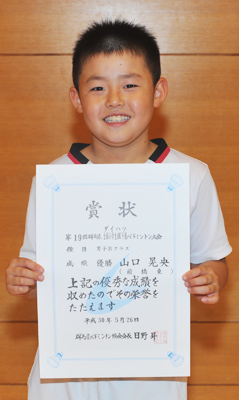 賞状
ダイハツ
第19回
バドミントン大会
種目 男子
クラス
成績 優勝 山口 晃央
(前橋東)
上記の優秀な成績を
収めたのでその栄誉を
たたえます
平成30年5月26日
バドミントン協会会長 日野 昇